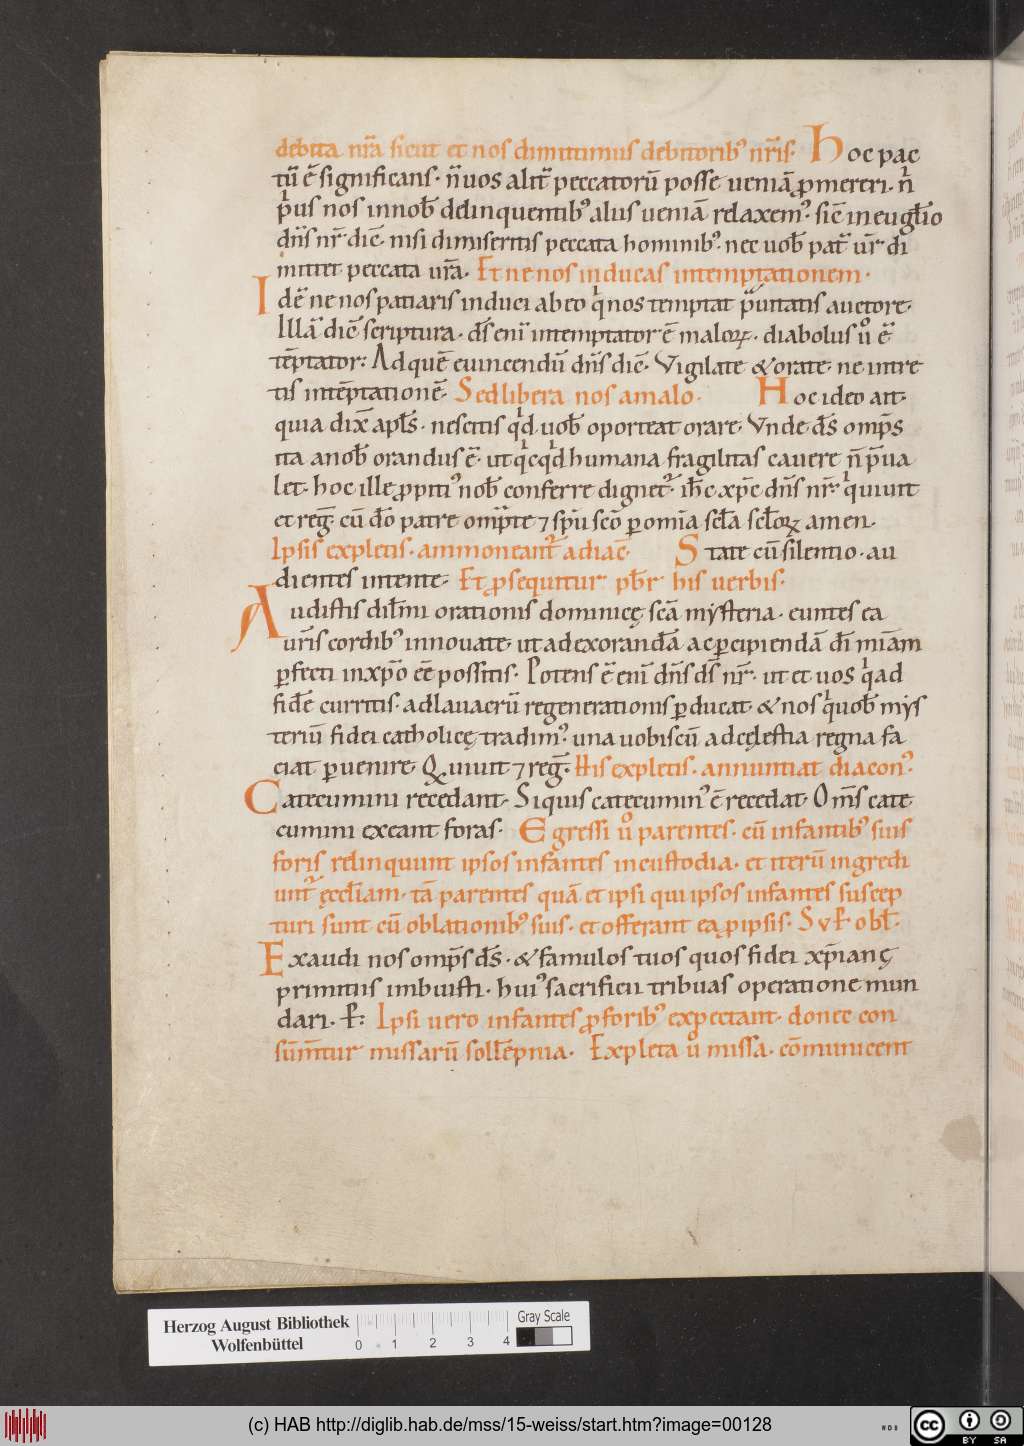 debita nr̄a sicut et nos dimittimus debitorib' nr̄is. Hoc pac
tū ē significans. n̄ uos alit̄ peccatorū posse ueniā ꝓmereri. nͥ
pͥus nos in nob̄ delinquentib' aliis ueniā relaxem'. sic̄ in eugl̄io
dn̄s nr̄ dic̄. nisi dimiseritis peccata hominib'. nec uob̄ pat̄ ur̄ di
mittet peccata ur̄a. Et ne nos inducas in temptationem.
Idē ne nos patiaris induci ab eo qͥ nos temptat p̄uitatis auctore.
Illā dic̄ scriptura. ds̄ enī intemptator ē maloꝝ. diabolus ůͦ ē
tēptator. Ad quē euincendū dn̄s dic̄. Vigilate & orate. ne intre
tis in tēptationē. Sed libera nos a malo. Hoc ideo ait.
quia dix̄ apl̄s. nescitis qͥd uob̄ oporteat orare. Vnde ds̄ omp̄s
ita a nob̄ orandus ē. ut qͥcqͥd humana fragilitas cauere n̄ p̄ua
let. hoc ille ꝓpiti' nob̄ conferre dignet̄. ih̄c xp̄c dn̄s nr̄. qͥ uiuit
et reg̅. cū dō patre omp̄te ⁊ sp̄u scō ꝑ omīa scl̄a scl̄oꝝ amen.
Ipsis expletis. ammoneant̄ a diac̄. State cū silentio. au
dientes intente. Et ꝓsequitur pb̄r his uerbis.
Audistis dil̄mi orationis dominicę scā mẏsteria. euntes ea
ur̄is cordib' innouate. ut ad exorandā ac ꝑcipiendā dī mīam
ꝑfecti in xp̄o eē possitis. Potens ē enī dn̄s ds̄ nr̄. ut et uos qͥ ad
fidē curritis. ad lauacrū regenerationis ꝑducat. & nos qͥ uob̄ mẏs
teriū fidei catholicę tradim'. una uobiscū ad cęlestia regna fa
ciat ꝑuenire. Qui uiuit ⁊ reg̅. His expletis. annuntiat diacon'.
Catecumini recedant. Siquis catecumin' ē recedat. Om̄s cate
cumini exeant foras. Egressi ůͦ parentes. cū infantib' suis
foris relinquunt ipsos infantes in custodia. et iterū ingredi
unt̄ ęccl̄iam. tā parentes quā et ipsi qui ipsos infantes suscep
turi sunt cū oblationib' suis. et offerant ea ꝓ ipsis. Sup̄ obl̄.
Exaudi nos omp̄s ds̄. & famulos tuos quos fidei xp̄ianę
primitiis imbuisti. hui' sacrificii tribuas operatione mun
dari. ꝑ: Ipsi uero infantes ꝓ forib' expectant. donec con
sūm̄tur missarū soll̄ēpnia. Expleta ůͦ missa. cōmunicent
Herzog August Bibliothek
Wolfenbüttel
0 1 2 3 4
Gray Scale
(c) HAB http://diglib.hab.de/mss/15-weiss/start.htm?image=00128
WDB
cc BY SA